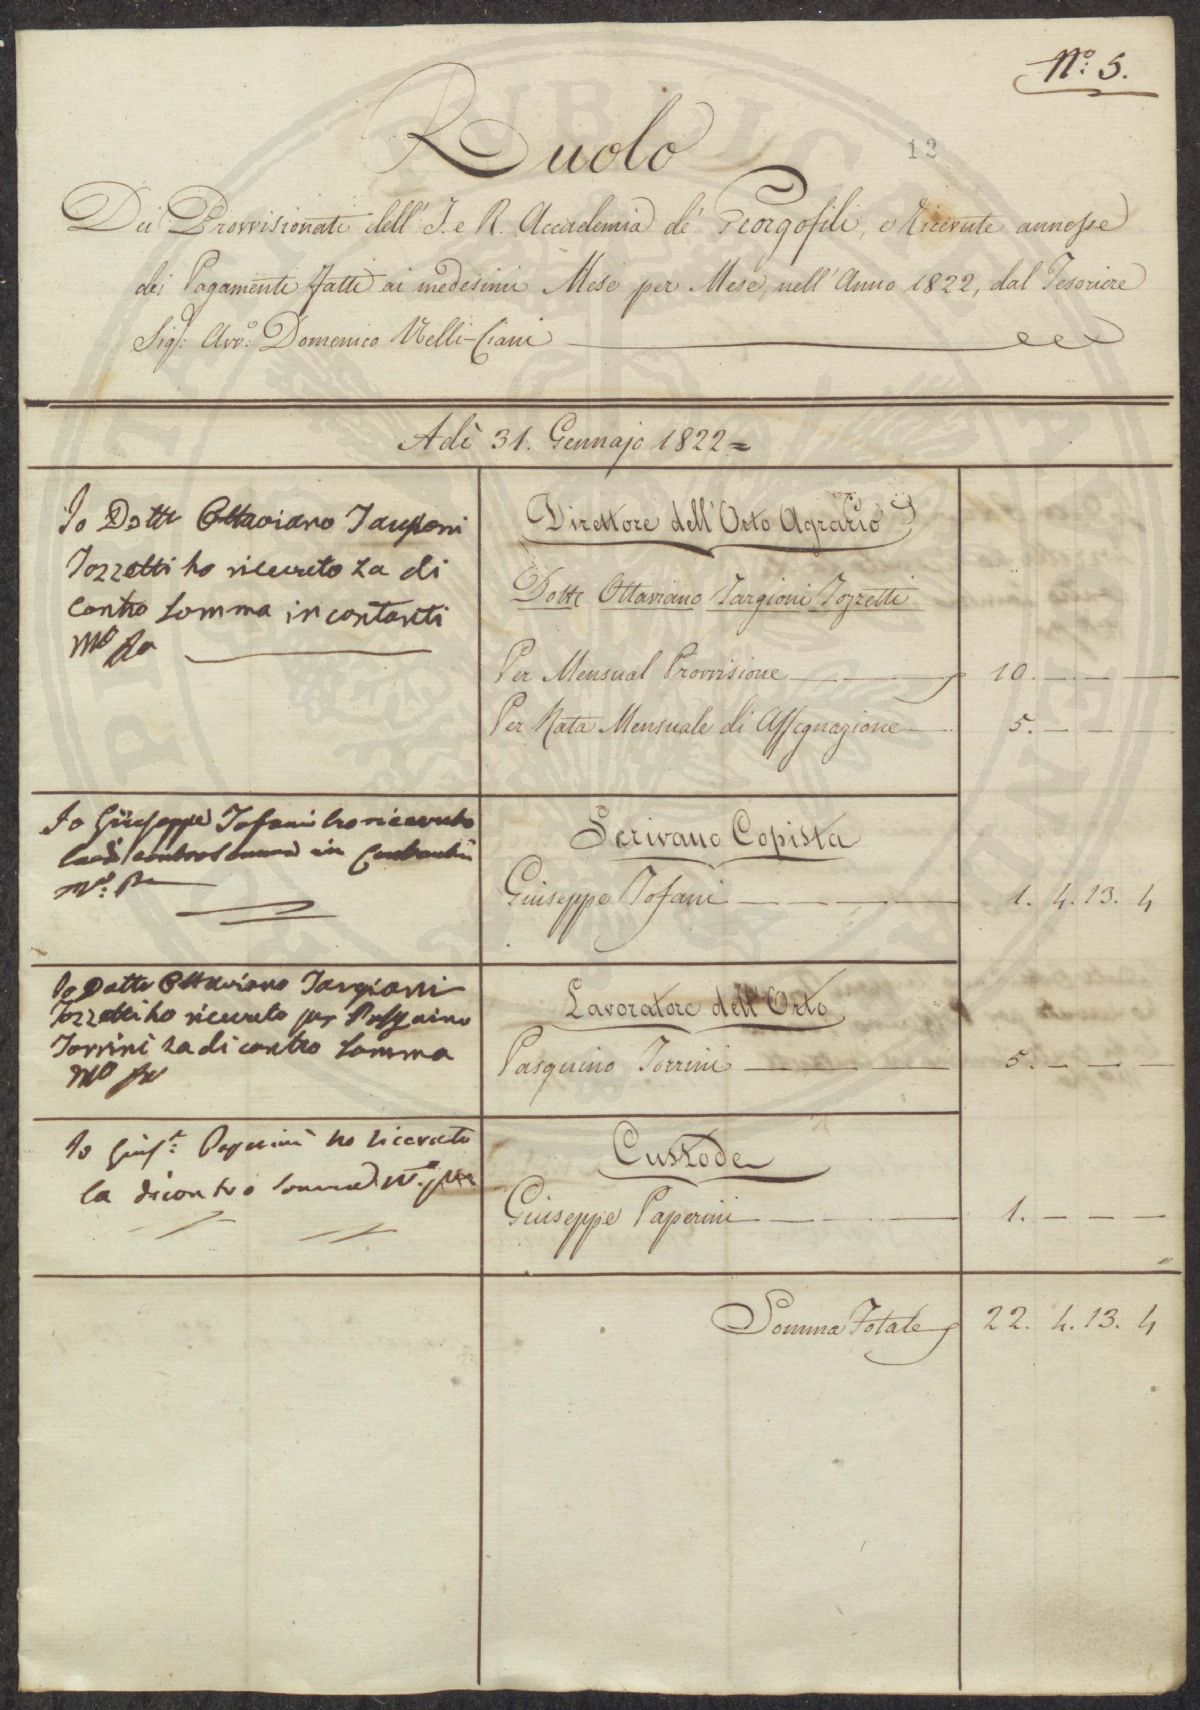 Nº: 5.
12
Ruolo
Dei Provvisionati dell' I. e R. Accademia de' Georgofili, e Ricevute annesse
dei Pagamenti fatti ai medesimi Mese per Mese, nell' Anno 1822, dal Tesoriere
Sig.r Avv.º Domenico Nelli-Ciani
Adì 31. Gennajo 1822=
Io Dottr Ottaviano Targioni
Tozzetti ho ricevuto la di
contro somma in contanti
mº pa
Direttore dell'Orto Agrario
Dottr Ottaviano Targioni Tozzetti
Per Mensual Provvisione 10. — — —
Per Rata Mensuale di Assegnazione 5. — — —
Io Giuseppe Tofani ho ricevuto
la di contro somma in Contanti
Mº: Pa
Scrivano Copista
Giuseppe Tofani — — — 1. 4. 13. 4
Io Dottr Ottaviano Targioni
Tozzetti ho ricevuto per Pasquino
Torrini la di contro somma
mº pa
Lavoratore dell' Orto
Pasquino Torrini — — — 5. — — —
Io Gius.e: Paperini ho ricevuto
la dicontro somma Mº. pa
Custode
Giuseppe Paperini — — — 1. — — —
Somma Totale 22. 4. 13. 4